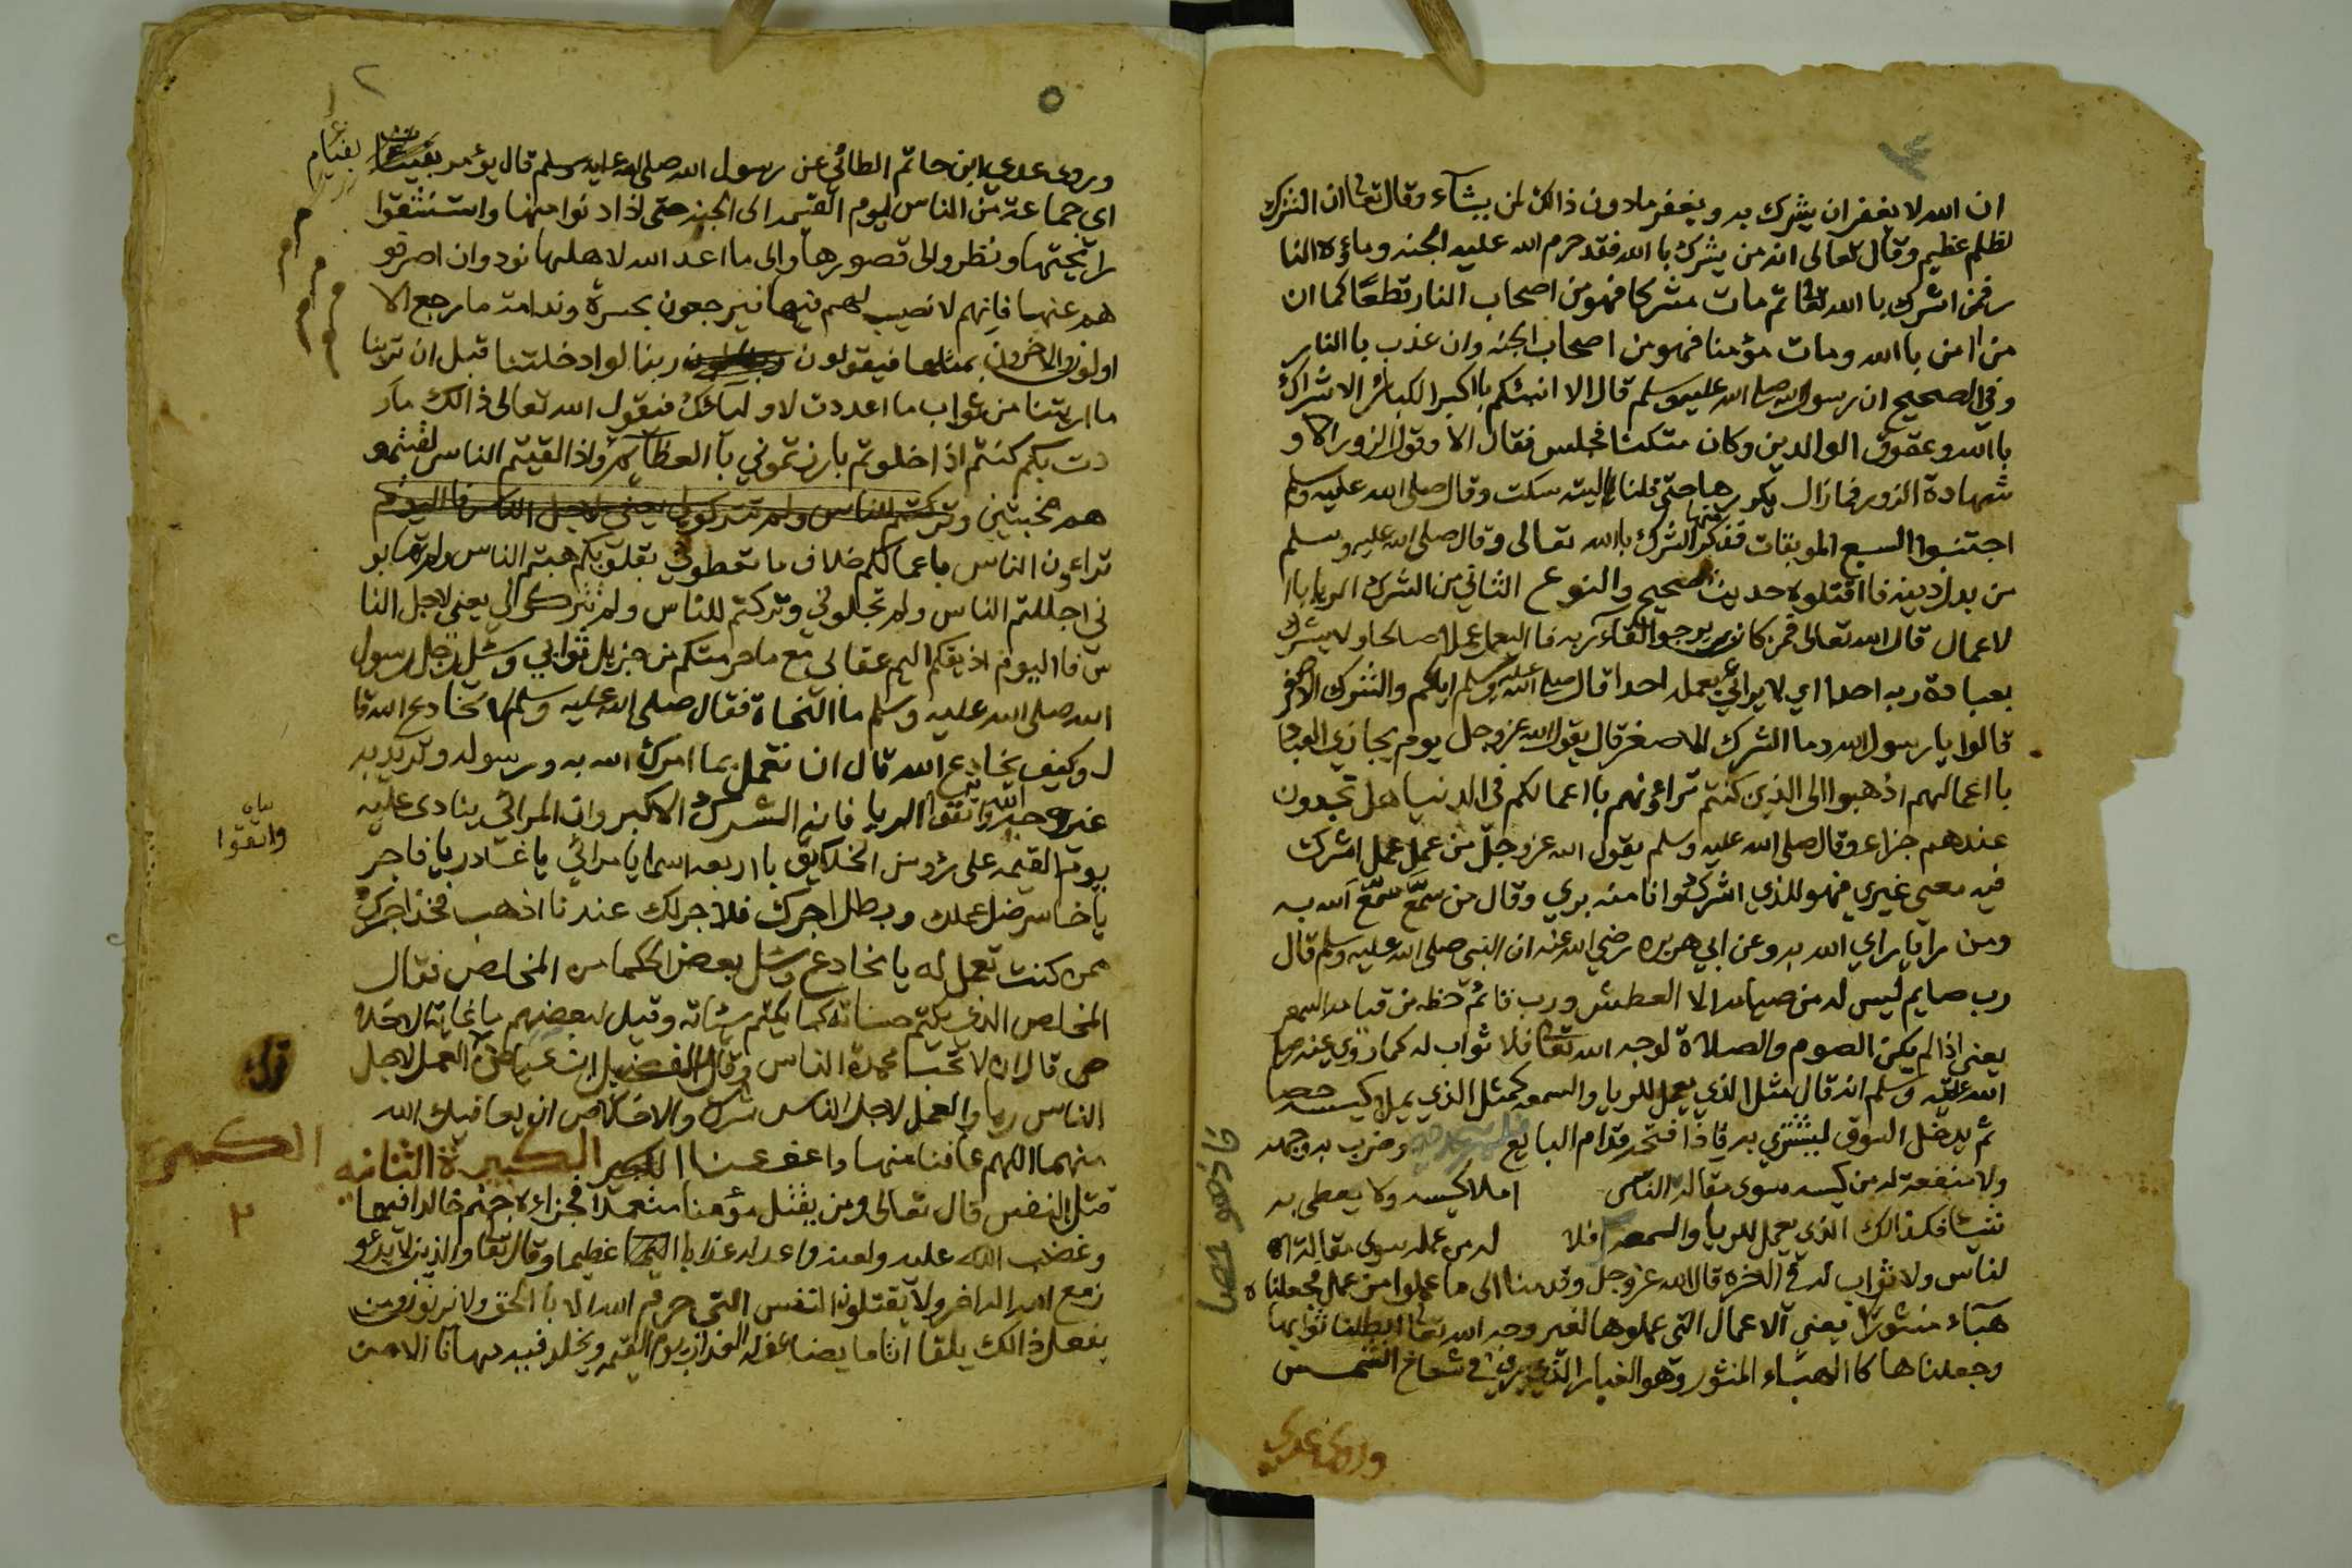 ان الله لا يغفر ان يشرك به ويغفر مادون ذالك لمن يشآء وقال تعا ان الشرك
لظلم عظيم وقال تعالى انه من يشرك با الله فقد حرم الله عليه الجنه وماءوه النا
ر فمن اشرك با الله تعا ثم مات مشركا فهو من اصحاب النار قطعًا كما ان
من امن با الله ومات مؤمنا فهو من اصحاب الجنه وان عذب با النار
وفي الصحيح ان رسول الله صلى الله عليه وسلم قال الا انبئكم با اكبر الكبائر الاشراك
با الله وعقوق الوالدين وكان متكئا فجلس فقال الا وقول الزور الا و
شهادة الزور فما زال يكررها حتى قلنا ليته سكت وقال صلى الله عليه وسلم
اجتنبوا السبع الموبقات فذكر منها الشرك بالله تعالى وقال صلى الله عليه وسلم
من بدل دينه فا اقتلوه حديث صحيح والنوع الثاني من الشرك الريا با ا
لاعمال قال الله تعالى فمن كان يرجوا لقآء ربه فا اليعمل عملا صالحا ولا يشرك
بعبادة ربه احدا اي لا يرائي بعمله احدا قال صلى الله عليه وسلم اياكم والشرك الاصغر
قالوا يا رسول الله وما الشرك الاصغر قال يقول الله عز وجل يوم يجازي العباد
با اعمالهم اذهبوا الى الذين كنتم تراءونهم با اعمالكم في الدنيا هل تجدون
عندهم جزاء وقال صلى الله عليه وسلم يقول الله عز وجل من عمل عمل اشرك
فيه معي غيري فهو للذي اشرك وانا منه بري وقال من سمّع سمّع الله به
ومن رايا راي الله به وعن ابي هريره رضي الله عنه ان النبي صلى الله عليه وسلم قال
رب صايم ليس له من صيامه الا العطش ورب قائم حظه من قيامه السهر
يعني اذا لم يكن الصوم والصلاة لوجه الله تعا فلا ثواب له كما روي عنه صلى
الله عليه وسلم انه قال مثل الذي يعمل للريا والسمعه كمثل الذي يملا كيسه حصا
ثم يدخل السوق ليشتري به فاذا فتحه قدام البايع وضرب به وجهه
ولا منفعة له من كيسه سوى مقالة الناس املا كيسه ولا يعطى به
شيئا فكذالك الذي يعمل للريا والسمعه فلا له من عمله سوى مقالة ال
لناس ولا ثواب له في الاخره قال الله عز وجل وقدمنا الى ما عملوا من عمل فجعلناه
هبآء منثورا يعني الاعمال التي عملوها لغير وجه الله تعا ابطلنا ثوابها
وجعلناها كا الهباء المنثور وهو الغبار الذي يرى في شعاع الشمس
وروى عدي
وروى عدي ابن حاتم الطائي عن رسول الله صلى الله عليه وسلم قال يؤمر
بفئام
اي جماعة من الناس ليوم القيمه الى الجنه حتى اذا دنوا منها واستنشقوا
رائحتها ونظرو الى قصورها والى ما اعد الله لاهلها نودوان اصرفو
هم عنها فانهم لا نصيب لهم فيها فيرجعون بحسرة وندامة ما رجع الا
اولون والاخرون بمثلها فيقولون ربنا لو ادخلتنا قبل ان ترينا
ما اريتنا من ثواب ما اعددت لاوليائك فيقول الله تعالى ذالك ما ار
دت بكم كنتم اذا خلوتم بارزتموني با العظايم واذا لقيتم الناس لقيتمو
هم مخبتين
تراءون الناس با عمالكم خلاف ما تعطوني بقلوبكم هبتم الناس ولم تهابو
ني اجللتم الناس ولم تجلوني وتركتم للناس ولم تتركوا لي يعني لاجل النا
س فا اليوم اذيقكم اليم عقابي مع ما حرمتكم من جزيل ثوابي وسئل رجل رسول
الله صلى الله عليه وسلم ما النجاة فقال صلى الله عليه وسلم لا تخادع الله قا
ل وكيف يخادع الله قال ان تعمل بما امرك الله به ورسوله وتريد به
غير وجه الله واتقوا الريا فانه الشرك الاكبر وان المرائي ينادى عليه
بيان
واتقوا
يوم القيمه على رؤوس الخلايق با اربعه اسما يا مرائي يا غادر يا فاجر
يا خاسر ضل عملك وبطل اجرك فلا اجر لك عندنا اذهب فخذ اجرك
ممن كنت تعمل له يا مخادع وسئل بعض الحكما من المخلص فقال
المخلص الذي يكتم حسناته كما يكتم سيئاته وقيل لبعضهم ما غاية الاخلا
ص قال ان لا تحب محمدة الناس وقال الفضيل ابن عياض ترك العمل لاجل
ترك
الناس ريا والعمل لاجل الناس شرك والاخلاص ان يعافيك الله
منهما اللهم عافنا منها واعف عنا الكبيرة الثانيه
٢
قتل النفس قال تعالى ومن يقتل مؤمنا متعمدا فجزاءه جهنم خالدا فيها
وغضب الله عليه ولعنه واعد له عذابا عظيما وقال تعا والذين لا يدعو
ن مع الله الها اخر ولا يقتلون النفس التي حرم الله الا با الحق ولا يزنون ومن
يفعل ذالك يلقا اثاما يضاعف له العذاب يوم القيمه ويخلد فيه مهانا الا من